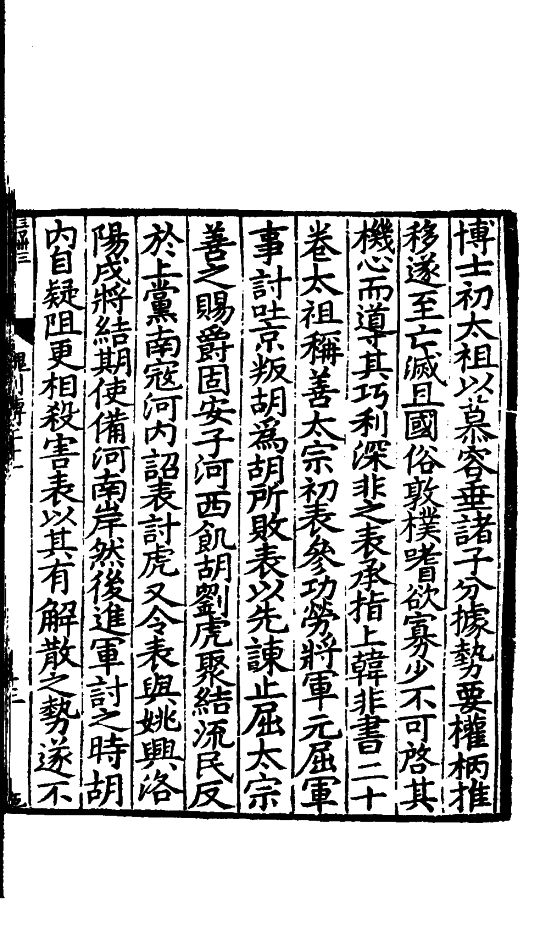 博士初太祖以慕容垂諸子分據勢要權柄推
移遂至亡滅且國俗敦樸嗜欲寡少不可啓其
機心而導其巧利深非之表承指上韓非書二十
卷太祖稱善太宗初表參功勞將軍元屈軍
事討吐京叛胡爲胡所敗表以先諫止屈太宗
善之賜爵固安子河西飢胡劉虎聚結流民反
於上黨南寇河內詔表討虎又令表與姚興洛
陽戍將結期使備河南岸然後進軍討之時胡
內自疑阻更相殺害表以其有解散之勢遂不